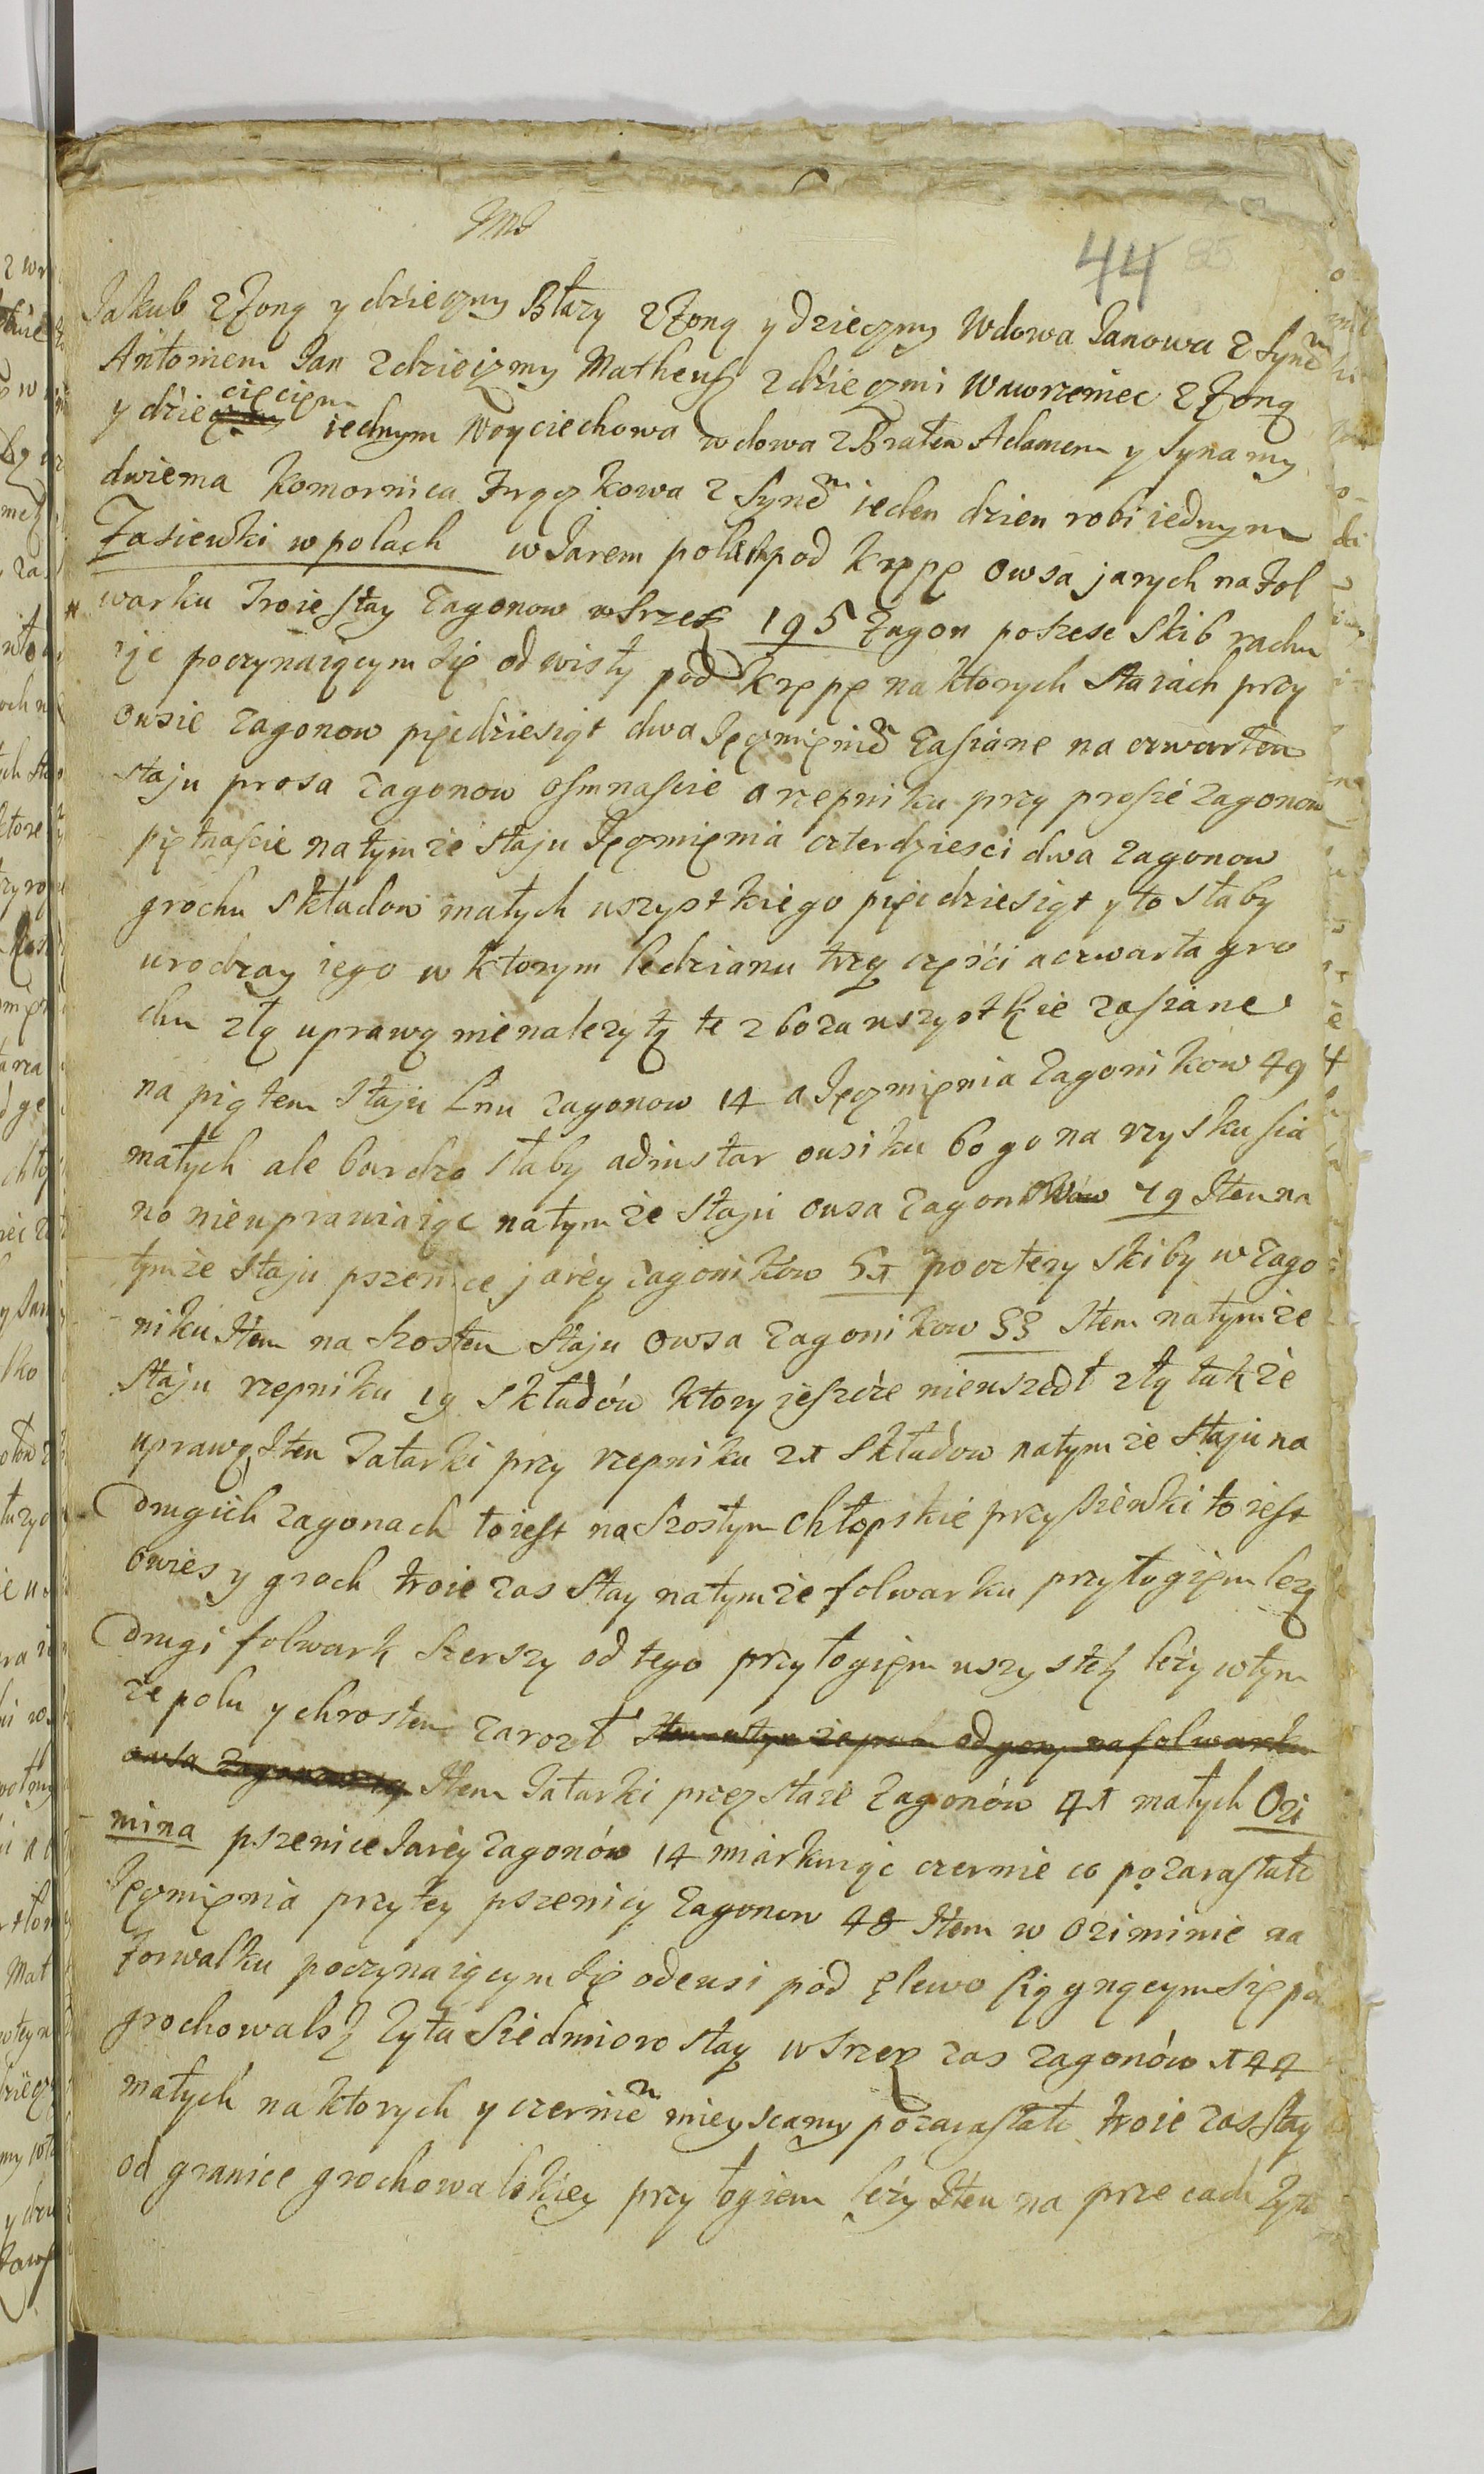 44 85
Jakub z Żoną y dziećmy Błazy z Żoną y dziećmy Wdowa Janowa z Synem
Antoniem Jan z dziećmy Matheusz z dziećmi Wawrzeniec z Żoną
y dziecięciem iednym Woyciechowa wdowa z Bratem Adamem y Synamy
dwiema Komornica z Synem ieden dzien robi iednym
Zasiewki w polach w Jarem polu pod Krępę owsa jarych na Fol
warku Troie stay Zagonow wszerz 195 Zagon poszesc Skib rachu
iąc poczynaiącym się od wisły pod Krępę na ktorych Staiach przy
owsie zagonow pięcdziesiąt dwa Ięczmięniem Zasiane na czwartem
staju prosa zagonow osmnascie a rzepniku przy prosie zagonow
piętnascie na tymze staju Ięczmięnia czterdziesci dwa zagonow
grochu składow małych wszystkiego pięcdziesiąt y to słaby
urodzay iego w ktorym ledzianu trzy części a czwarta gro
chu złą uprawą nienalezytą te zboza wszystkie zasiane
na piątem staju Lnu zagonow 14 a Ięczmięnia Zagonikow 49
małych ale bardzo słaby adinstar owsiku bo go na rzysku sia
no nieuprawiaiąc na tymze staju owsa zagonikow 79 Item na
tymze staju pszenice jarey zagonikow 51 po cztery skiby w zago
niku Item na szostem staju owsa zagonikow 53 Item na tymze
staju rzepniku 19 składów ktory ieszcze nieuszedł złą takze
uprawą, Item Tatarki przy rzepniku 21 składow na tymze staju na
drugich zagonach to iest na szostym chłopskie przysiewki to iest
owies y groch troie zas stay na tymze folwarku przyłogiem lezą
drugi folwark szerszy od tego przyłogięm wszystek lezy w tym
ze polu y chrostem zarozł Item w tymze polu od gory na folwarku
owsa zagonow Item Tatarki przez staie zagonów 41 małych Ozi
mina pszenice Jarey zagonów 14 miarkuiąc czernie co pozarastałe
Ięczmięnia przytey pszenicy zagonow 48 Item w oziminie na
forwalku poczynaiącym się odewsi pod ciągnącym się po
grochowalsk zyta siedmioro stay wszerz zas zagonów 144
małych na ktorych y czerniem mieyscamy pozarastałe troie zas stay
od granice grochowalskiey przyłogiem lezy Item na przecach zyto